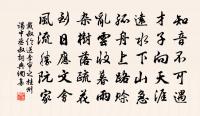 知音不可遇
才子向天涯
遠水下山急
孤舟上路賒
亂雲收暮雨
雜樹落疏花
到日應文會
風流勝阮家
戴叔倫送李審之桂州
謁中丞叔詞典網集